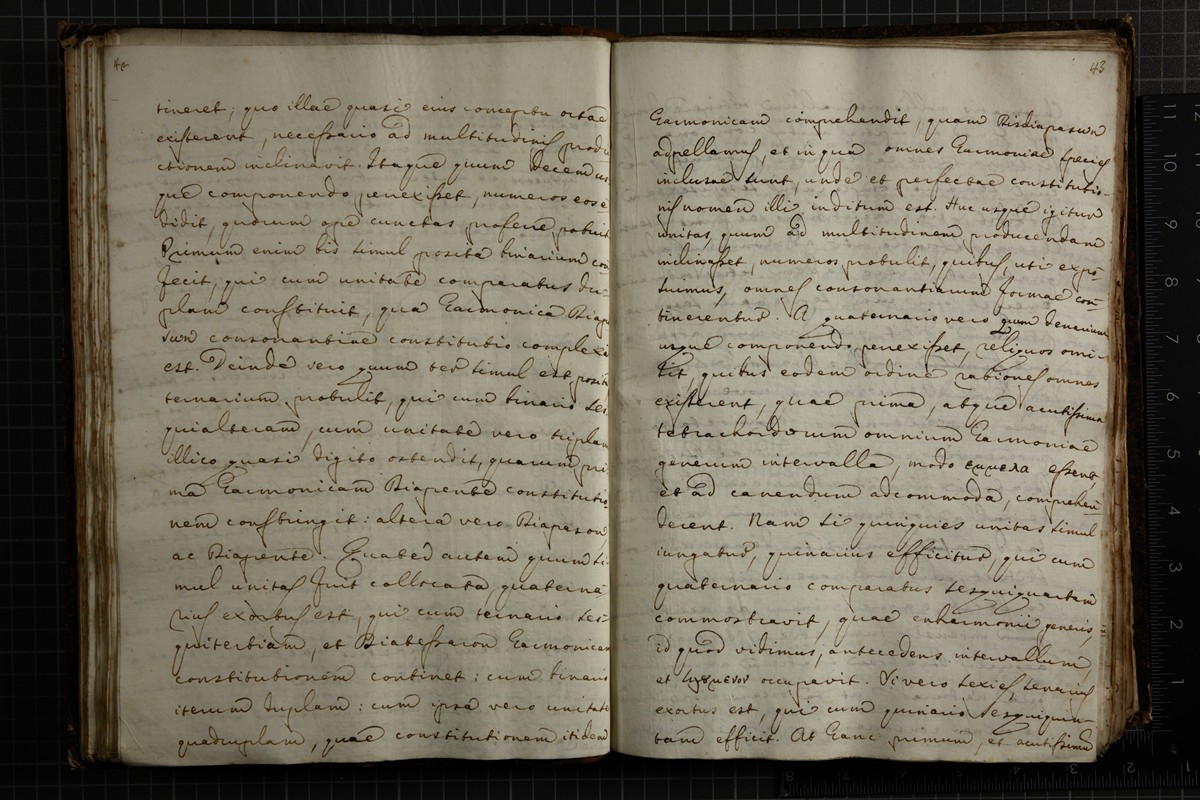 42
tineret; quo illae quasi eius conceptu ortae
existerent, necessario ad multitudinis produ
ctionem inclinavit. Itaque quum decem us
que componendo perrexisset, numeros eos e
didit, quorum ope cunctas proferre potuit
Primum enim bis simul posita binarium con
fecit, qui cum unitate comparatus du-
plam constituit, qua Harmonica Diapa
son consonantiae constitutio complexa
est. Deinde vero quum ter simul est posita
ternarium protulit, qui cum binario ses
quialteram, cum unitate vero triplam
illico quasi digito ostendit, quarum pri
ma Harmonicam Diapente constitutio-
nem constringit: altera vero Diapason
ac Diapente. Quater autem quum si-
mul unitas fuit collocata quaterna
rius exortus est, qui cum ternario ses-
quitertiam, et Diatessaron Harmonicam
constitutionem continet: cum binario
iterum duplam: cum ipsa vero unitate
quadruplam, quae constitutionem itidem
43
Harmonicam comprehendit, quam Disdiapason
adpellamus, et in qua omnes Harmoniae species
inclusae sunt, unde et perfectae constitutio-
nis nomen illi inditum est. Huc usque igitur
unitas, quum ad multitudinem producendam
inclinasset, numeros protulit, quibus, uti expo-
suimus, omnes consonantiarum formae con-
tinerentur. A quaternario vero quum denarium
usque componendo perrexisset, reliquos omi-
sit, quibus eodem ordine rationes omnes
existerent, quae prima, atque acutissima
tetrachordorum omnium Harmoniae
generum intervalla, modo εμμελη essent
et ad canendum adcommoda, comprehen
derent. Nam si quinquies unitas simul
iungatur, quinarius efficitur, qui cum
quaternario comparatus sesquiquartam
commostravit, quae enharmonii generis,
id quod vidimus, antecedens intervallum,
et occupavit. Si vero sexies, senarius
exortus est, qui cum quinario sesquiquin-
tam efficit. At hanc primum, et acutissimum